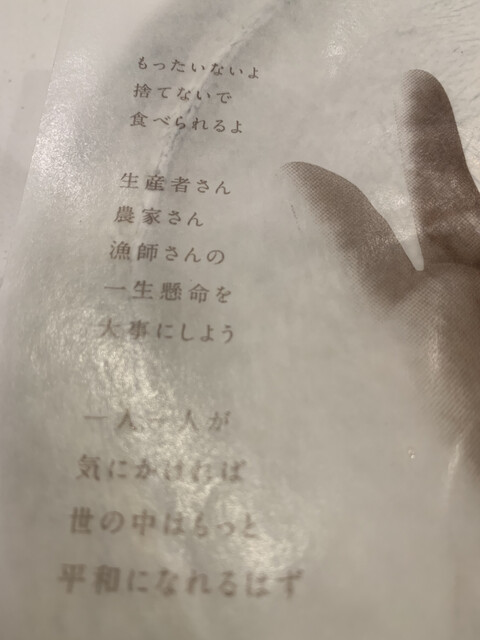 もったいないよ
捨てないで
食べられるよ
生産者さん
農家さん
漁師さんの
一生懸命を
大事にしよう
一人一人が
気にかければ
世の中はもっと
平和になれるはず